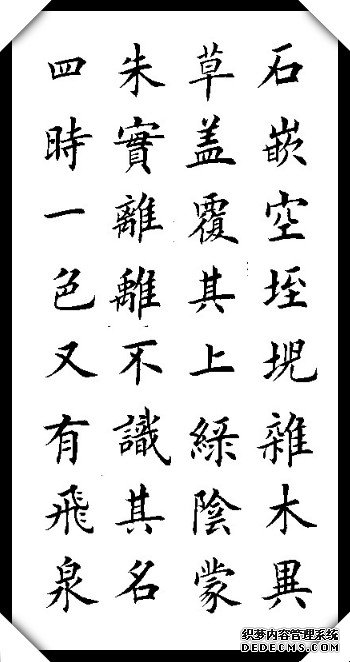 石嵌空垤堄雜木異
草盖覆其上綠陰蒙
朱實離離不識其名
四時一色又有飛泉
织梦内容管理系统
DEDECMS.COM